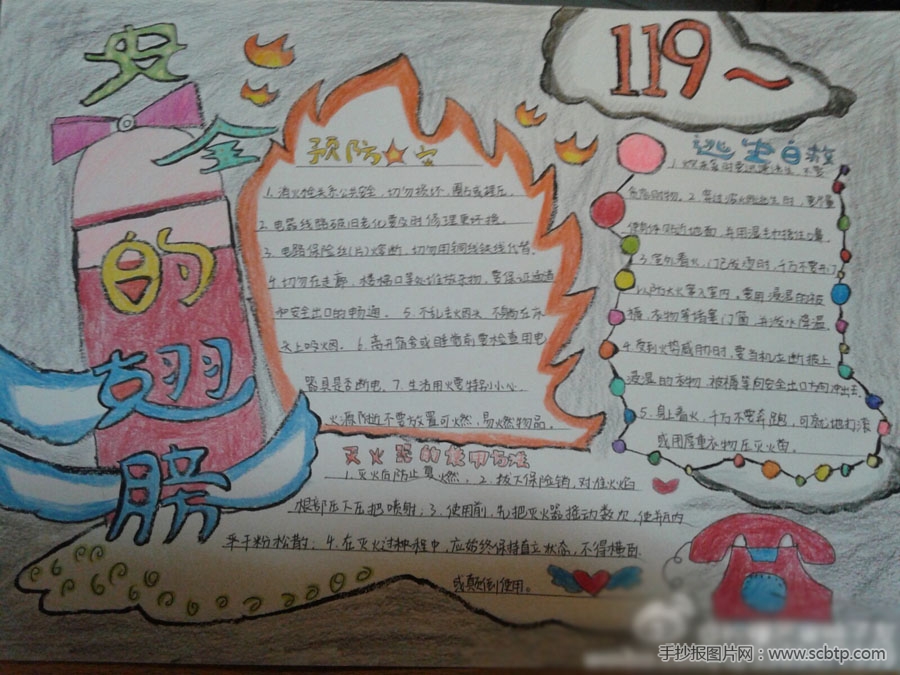 安全的翅膀
119~
预防火灾
1. 消火栓关系公共安全，切勿损坏、圈占或埋压。
2. 电器线路破旧老化要及时修理更换。
3. 电路保险丝(片)熔断，切勿用铜线铁线代替。
4. 切勿在走廊、楼梯口等处堆放杂物，要保证通道
和安全出口的畅通。 5. 不乱丢烟头，不躺在床
头上吸烟。 6. 离开宿舍或睡觉前要检查用电
器具是否断电。7. 生活用火要特别小心，
火源附近不要放置可燃、易燃物品。
逃生自救
危险时物。2. 穿过浓烟逃生时，要尽量
使身体贴近地面，并用湿毛巾捂住口鼻。
3. 室外着火，门已发烫时，千万不要开门
以防大火窜入室内，要用浸湿的被
褥、衣物等堵塞门窗，并泼水降温。
4. 受到火势威胁时，要当机立断披上
浸湿的衣物、被褥等向安全出口方向冲出去
5. 身上着火，千万不要奔跑，可就地打滚
或用厚重衣物压灭火苗。
灭火器的使用方法
1. 灭火后防止复燃。 2. 拔去保险销，对准火焰
根部压下压把喷射；3. 使用前，先把灭火器摇动数次，使瓶内
干粉松散；4. 在灭火过程中，应始终保持直立状态，不得横卧
或颠倒使用。
手抄报图片网：www.scbtp.com